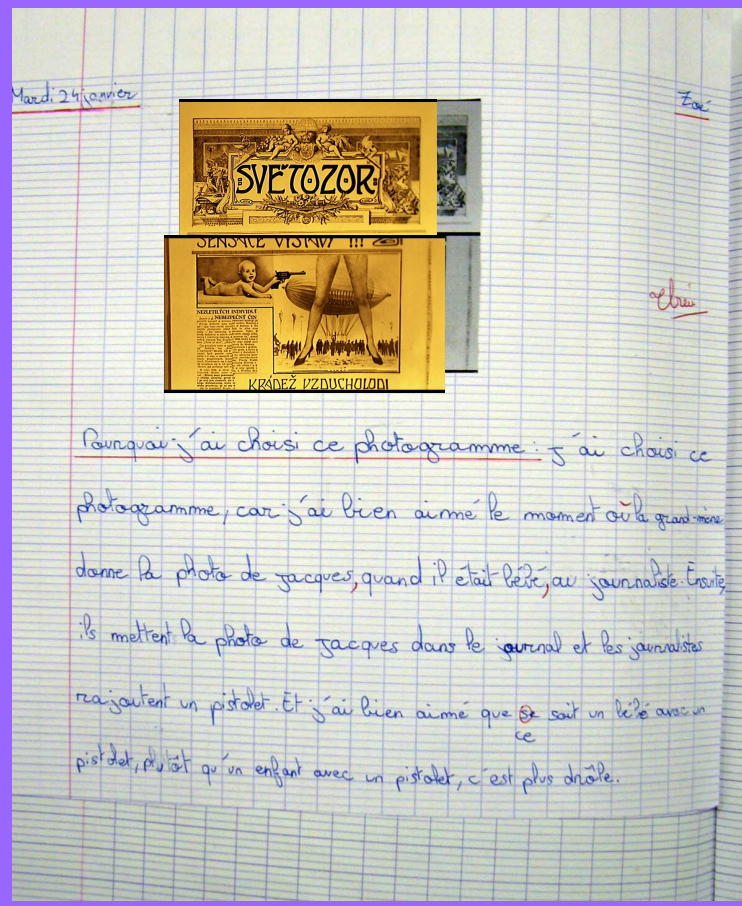 Mardi 24 janvier
Zoé
SVĚTOZOR
SENSACE VÝSTAVY !!!
NEZLETILÝCH INDIVIDUÍ
NEBEZPEČNÝ ČIN
KRÁDEŽ VZDUCHOLODI
Pourquoi j'ai choisi ce photogramme : J'ai choisi ce
photogramme, car j'ai bien aimé le moment où la grand-mère
donne la photo de Jacques, quand il était bébé, au journaliste. Ensuite,
ils mettent la photo de Jacques dans le journal et les journalistes
rajoutent un pistolet. Et j'ai bien aimé que se soit un bébé avec un
ce
pistolet, plutôt qu'un enfant avec un pistolet, c'est plus drôle.